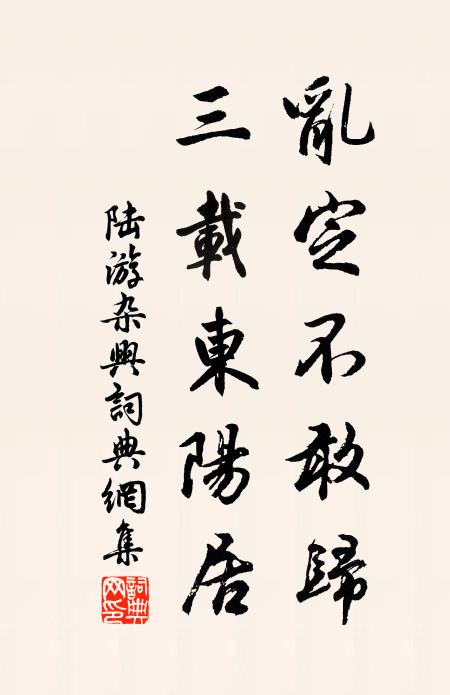 亂定不敢歸
三載東陽居
陸游杂興詞典網集
詞典网印